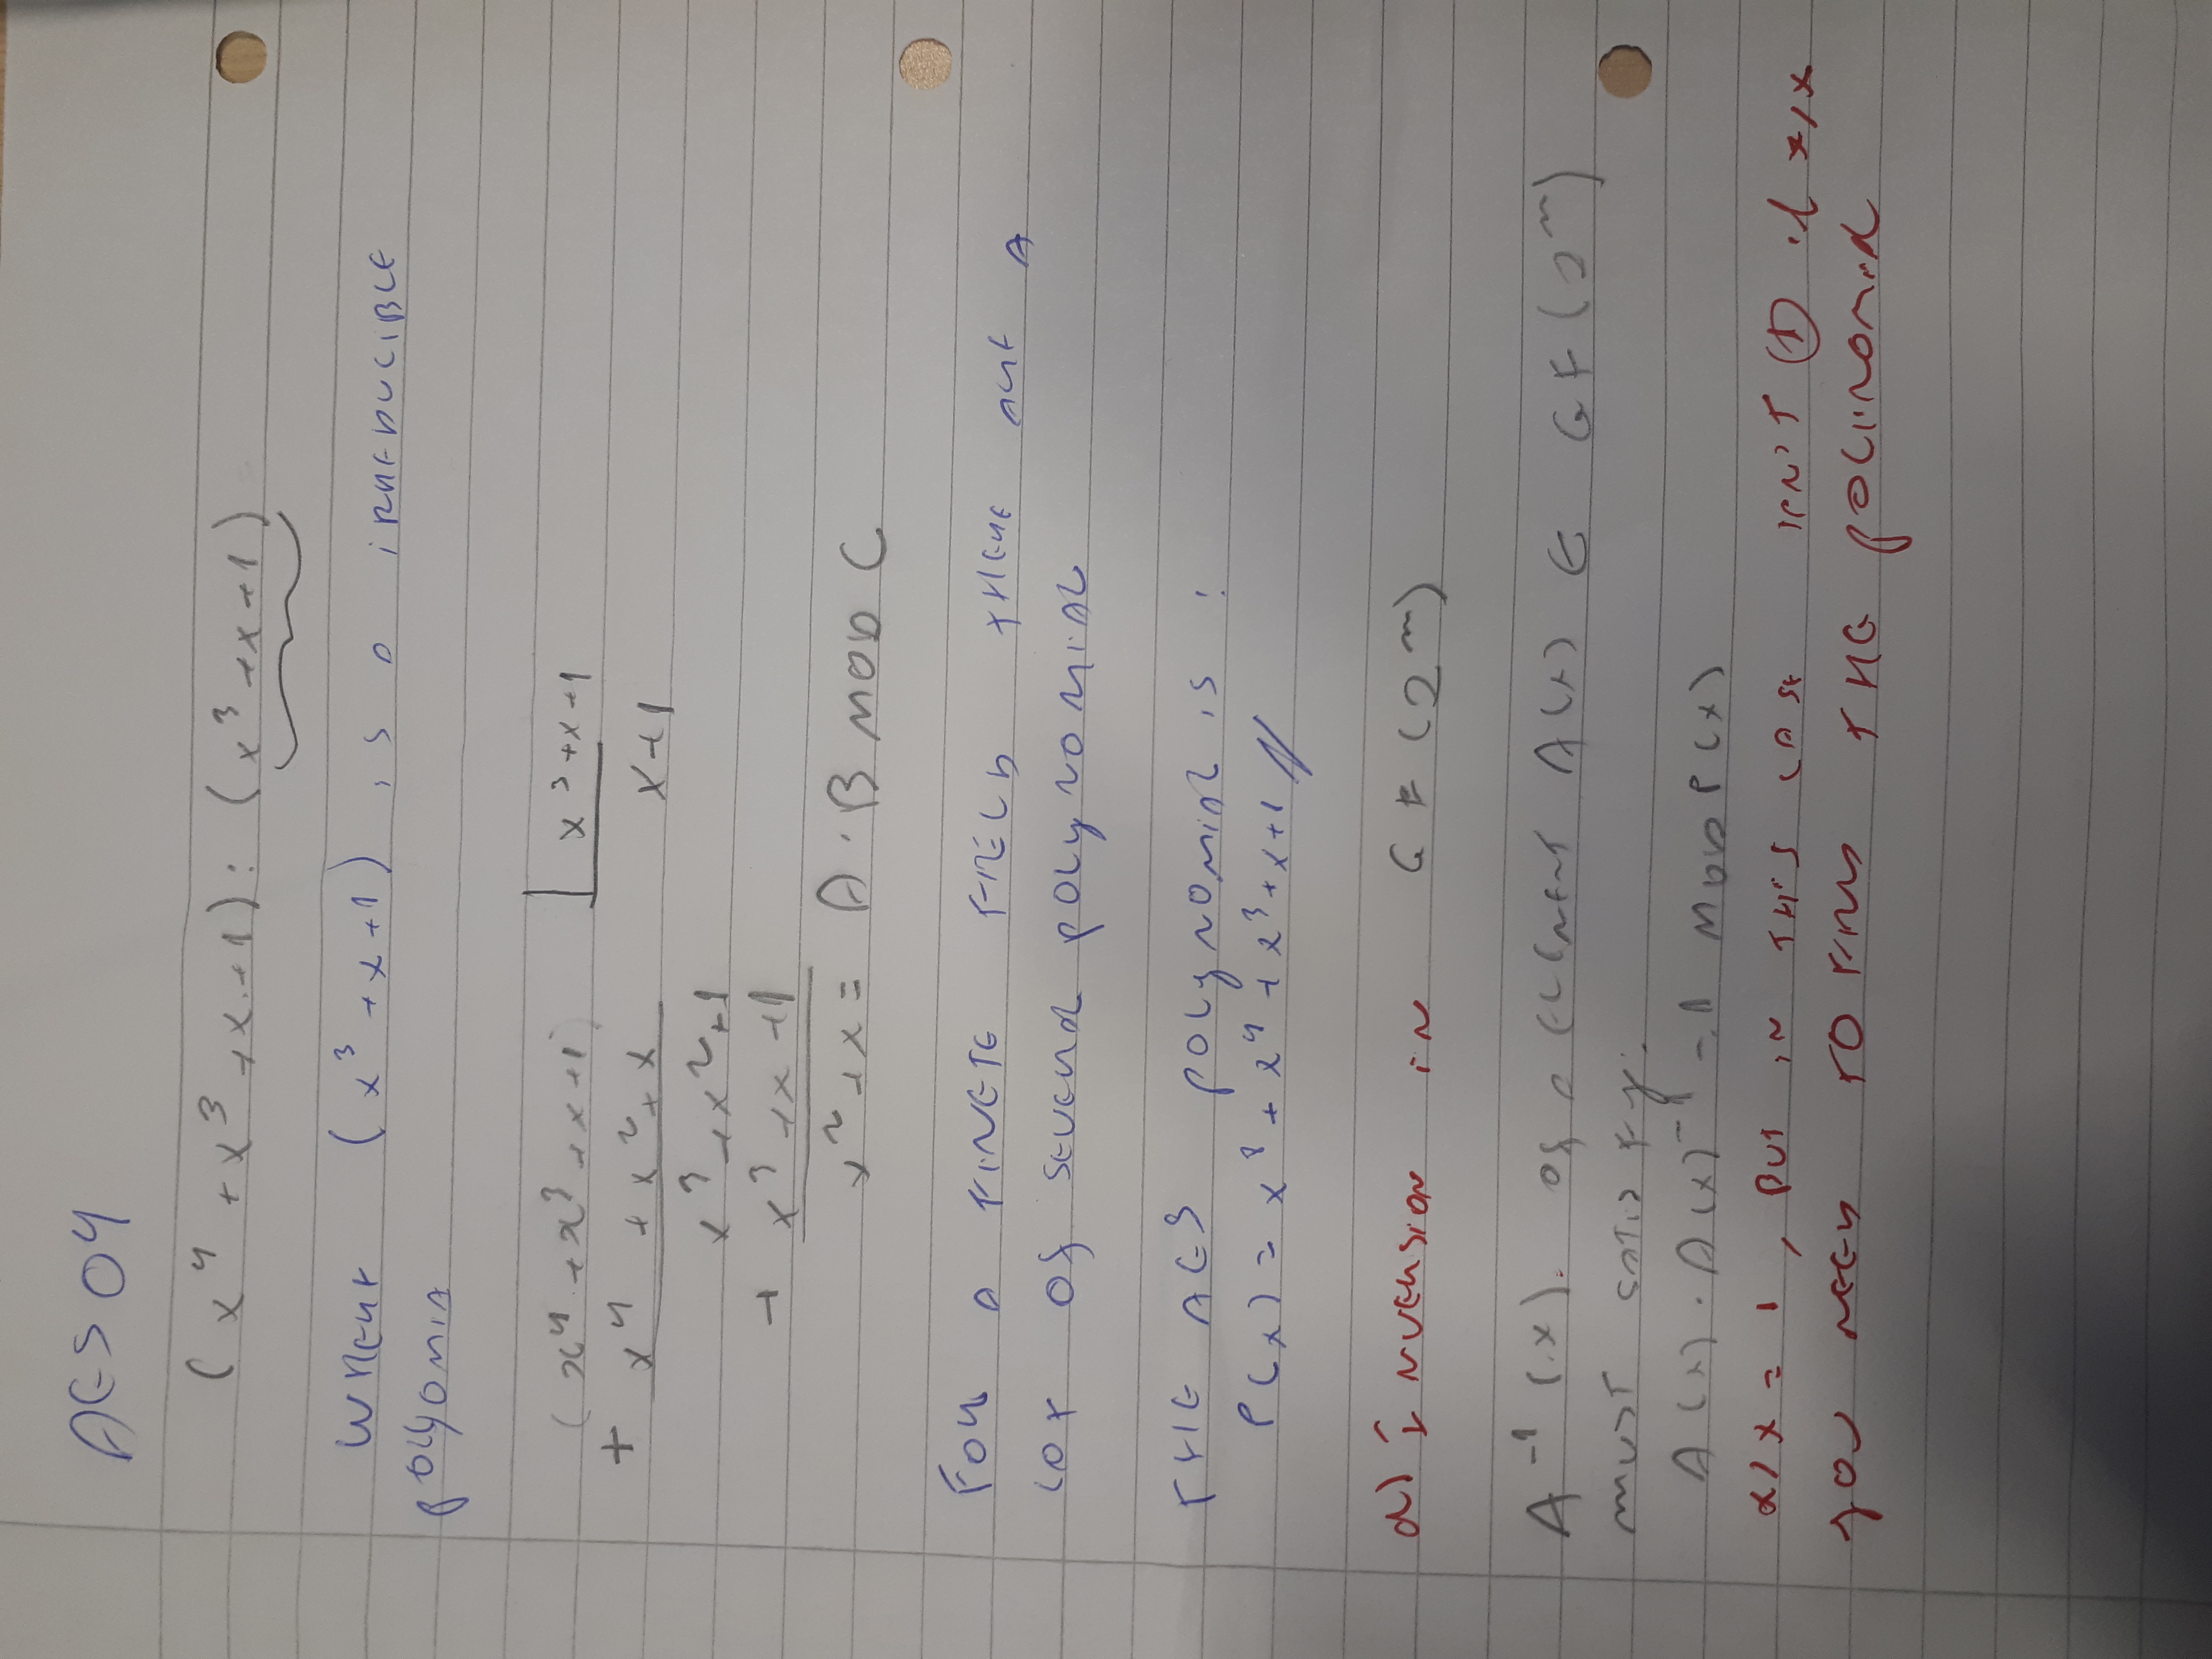 AES 04
(x⁴ + x³ + x + 1) : (x³ + x + 1)
WHERE (x³ + x + 1) is a iRREDUCIBLE
polyomiA
(x⁴ + x³ + x + 1) x³ + x + 1
+ x⁴ + x² + x x + 1
x³ + x² + 1
+ x³ + x + 1
x² + x = A · B MOD C
FOR A FINETE FIELD THERE ARE A
LOT OF SEVERAL polyNOMiAL
THE AES polyNOMiAL is :
P(x) = x⁸ + x⁴ + x³ + x + 1 //
d) INVERSION iN GF(2ᵐ)
A⁻¹(x). of a ELEMENT A(x) ∈ GF(2ᵐ)
MUST SATISFY:
A(x) · A(x)⁻¹ = 1 MOD P(x)
x/x = 1, BUT iN THIS CASE ISN'T ① if x/x
YOU NEED TO FIND THE poliNOMiAL